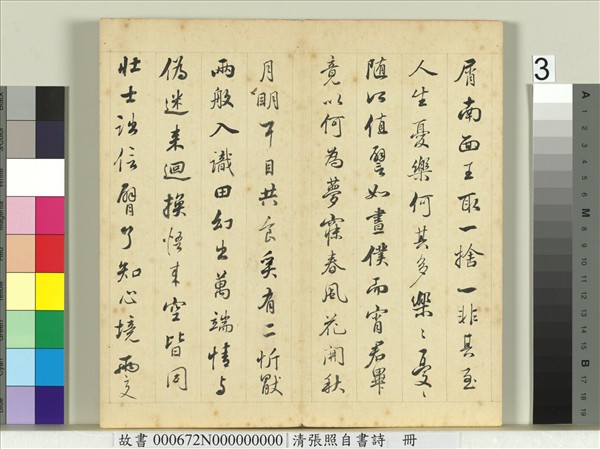 屑南面王取一捨一非其至
人生憂樂何其多樂〻憂〻
隨所值譬如晝僕而宵君畢
竟以何為夢寐春風花開秋
月明耳目共食奚有二忻厭
兩般入識田幻出萬端情与
偽迷来迴換悟来空皆同
壮士詘信臂了知心境兩交
3
A 1 2 3 4 5 6 M 8 9 10 11 12 13 14 15 B 17 18 19
故書 000672N000000000 清張照自書詩 冊